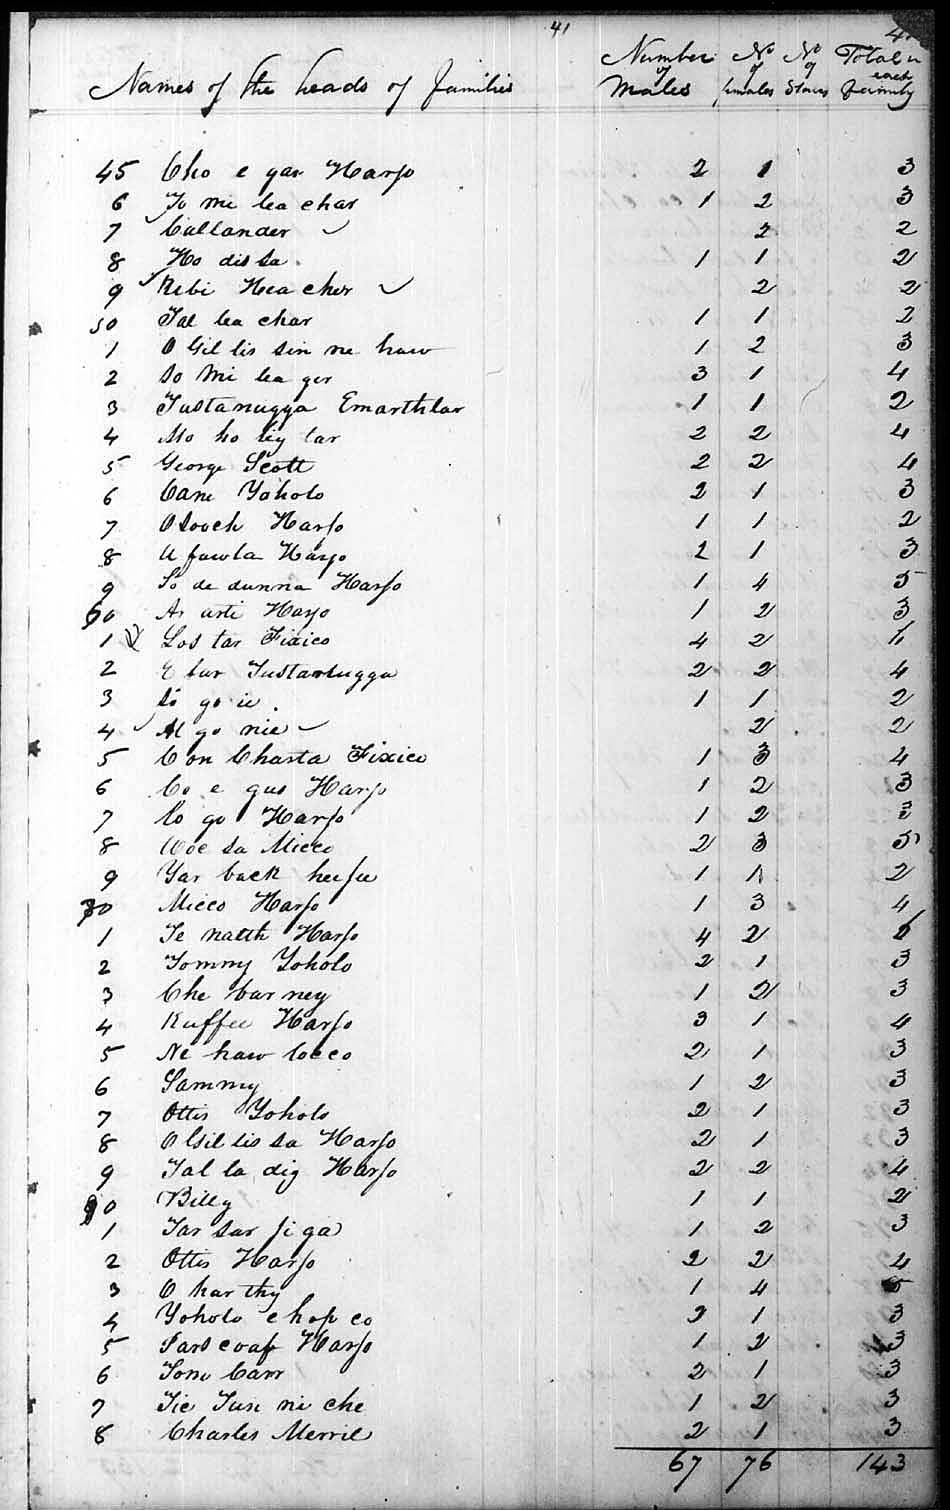 41
Names of the heads of families Number of Males No of females No of Slaves Total in each family
45 Cho e gar Harjo 2 1 3
6 To mi lea char 1 2 3
7 Callander 2 2
8 Ho dis sa 1 1 2
9 Kebi Hea cher 2 2
50 Tal lea char 1 1 2
1 O Gil lis sin ne haw 1 2 3
2 So Mi lea ger 3 1 4
3 Tustanugga Emarthlar 1 1 2
4 Mo ho lig lar 2 2 4
5 George Scott 2 2 4
6 Cane Yoholo 2 1 3
7 Osooch Harjo 1 1 2
8 U fawla Harjo 2 1 3
9 So de dunna Harjo 1 4 5
60 Ar arti Harjo 1 2 3
1 Los tar Fixico 4 2 6
2 E far Tustanugga 2 2 4
3 So go ie 1 1 2
4 Al go nie 2 2
5 Con Charta Fixico 1 3 4
6 Co e gus Harjo 1 2 3
7 Co go Harjo 1 2 3
8 Woc sa Micco 2 3 5
9 Yar back hu 1 1 2
70 Micco Harjo 1 3 4
1 Te nath Harjo 4 2 6
2 Tommy Yoholo 2 1 3
3 Che bar ney 1 2 3
4 Kuffee Harjo 3 1 4
5 Ne haw locco 2 1 3
6 Sammy 1 2 3
7 Ottis Yoholo 2 1 3
8 O Gil lis sa Harjo 2 1 3
9 Tal la dig Harjo 2 2 4
80 Billy 1 1 2
1 Tar sar ji ga 1 2 3
2 Ottis Harjo 2 2 4
3 O har thy 1 4 5
4 Yoholo chop co 2 1 3
5 Harjo 1 2 3
6 Tom Carr 2 1 3
7 Tic Tusi ni che 1 2 3
8 Charles Merril 2 1 3
67 76 143